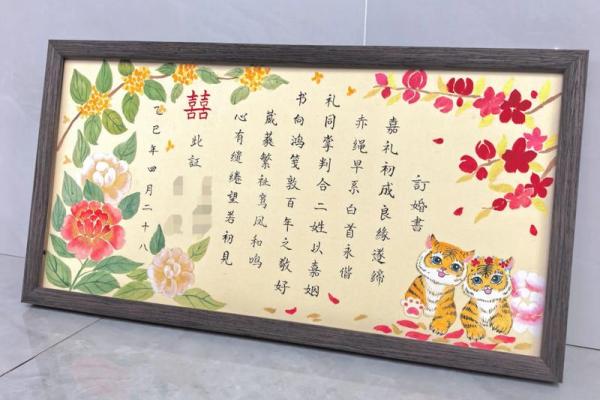 訂婚書
嘉礼初成良緣遂締
赤绳早系白首永偕
礼同掌判合二姓以嘉姻
书向鸿笺敦百年之敬好
葳蕤繁祉鸾凤和鸣
心有缱绻望若初見
此証
囍
乙巳年四月二十八